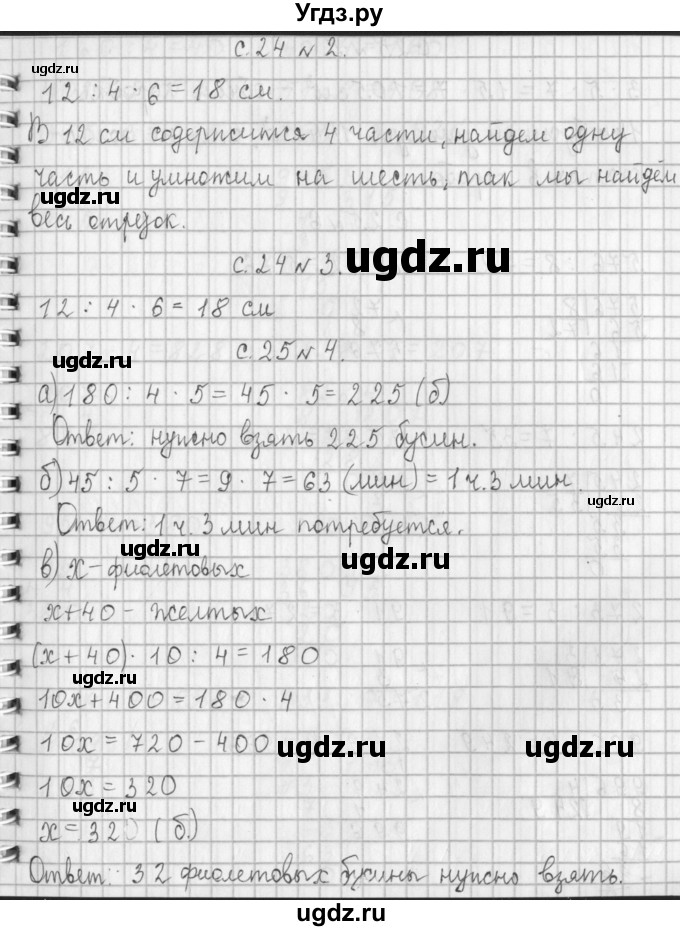 Угдз.ру
с. 24 № 2.
ugdz.ru
12 : 4 · 6 = 18 см.
В 12 см содержится 4 части, найдем одну
часть и умножим на шесть, так мы найдём
ugdz.ru
весь отрезок.
с. 24 № 3.
ugdz.ru
12 : 4 · 6 = 18 см
с. 25 № 4.
ugdz.ru
а) 180 : 4 · 5 = 45 · 5 = 225 (б)
Ответ: нужно взять 225 бусин.
б) 45 : 5 · 7 = 9 · 7 = 63 (мин) = 1 ч. 3 мин.
ugdz.ru
Ответ: 1 ч. 3 мин потребуется.
ugdz.ru
ugdz.ru
в) х - фиолетовых
х+40 - желтых
(х + 40) · 10 : 4 = 180
ugdz.ru
10х + 400 = 180 · 4
10х = 720 - 400
ugdz.ru
ugdz.ru
10х = 320
ugdz.ru
ugdz.ru
х = 32 (б.)
Ответ: 32 фиолетовых бусины нужно взять.
ugdz.ru